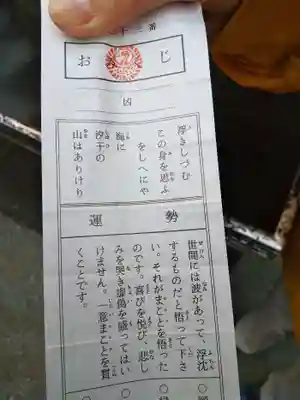 十三番
おみじ
凶
浮きしづむ
この身を思ふ
をしへにや
海に
汐干の
山はありけり
運勢
世間には波があって、浮沈
するものだと悟って下さ
い。それがまことを悟った
のです。喜びを悦び、悲し
みを哭き虚偽を盛ってはい
けません。一意まことを貫
くことです。